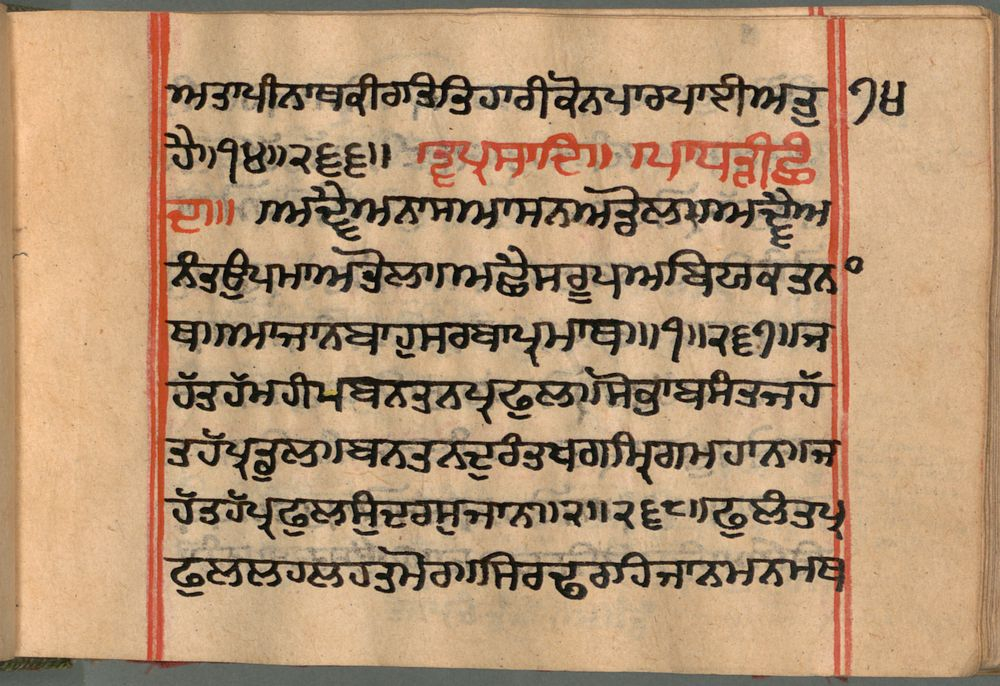 ਅਤਾਪੀਨਾਥਕੀਰਤਿਤਿਹਾਰੀਕੋਨਪਾਰਪਾਈਅਤੁ ੧੪
ਹੈ॥੧੪॥੨੬੬॥ ਤ੍ਵਪ੍ਰਸਾਦਿ॥ ਪਾਧੜੀਛੰ
ਦ॥ ਅਦ੍ਵੈਅਨਾਸਆਸਨਅਡੋਲ॥ਅਦ੍ਵੈਅ
ਨੰਤਉਪਮਾਅਤੋਲ॥ਅਛੈਸਰੂਪਅਬਿਯਕਤਨਾ
ਥ॥ਆਜਾਨਬਾਹੁਸਰਬਾਪ੍ਰਮਾਥ॥੧॥੨੬੭॥ਜ
ਹੱਤਹੱਮਹੀਪਬਨਤਨਪ੍ਰਫੁਲ॥ਸੋਭਾਬਸੰਤਜਹੱ
ਤਹੱਪ੍ਰਡੁਲ॥ਬਨਤਨੰਦੁਰੰਤਖਗਮ੍ਰਿਗਮਹਾਨ॥ਜ
ਹੱਤਹੱਪ੍ਰਫੁਲਸੁੰਦਰਸੁਜਾਨ॥੨॥੨੬੮॥ਫੁਲੰਤਪ੍ਰ
ਫੁਲਲਹਲਹਤਮੋਰ॥ਸਿਰਢੁਰਹਿਜਾਨਮਨਮਥ